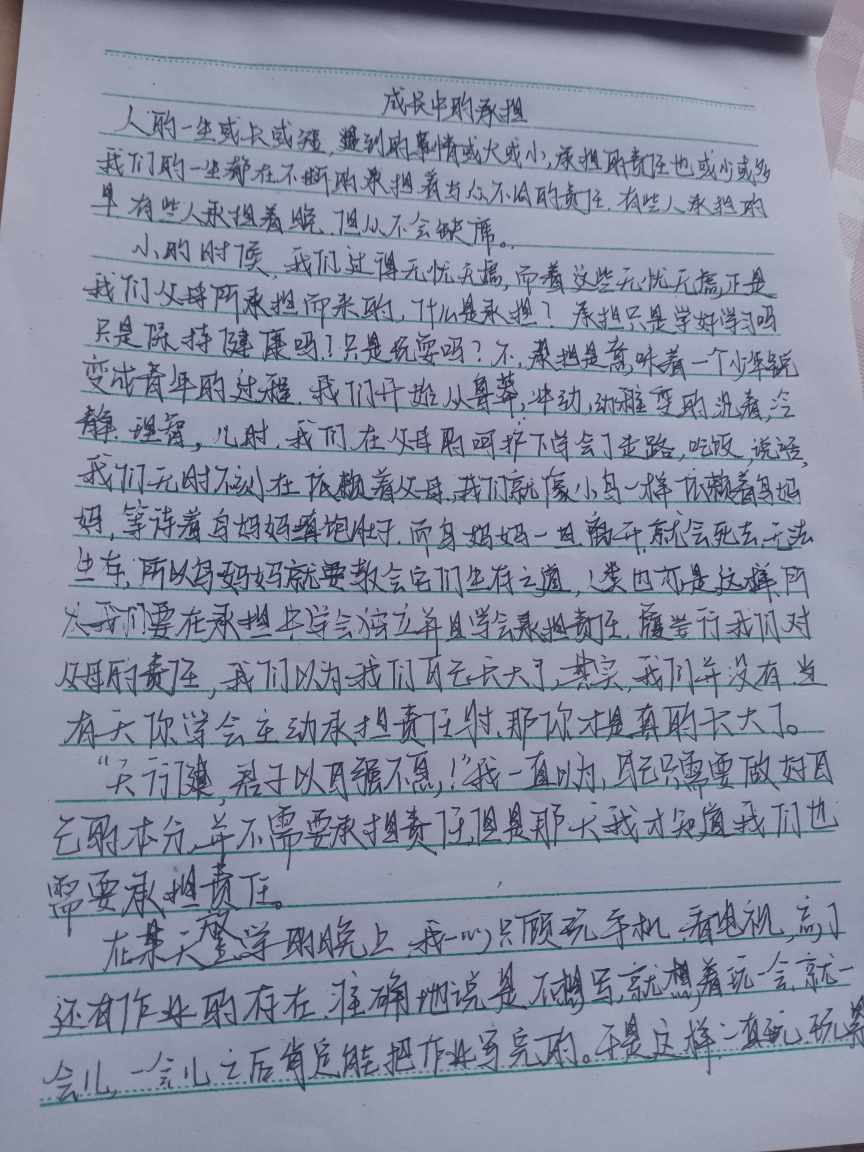 成长中的承担
人的一生或长或短,遇到的事情或大或小,承担的责任也或少或多
我们的一生都在不断的承担着与众不同的责任.有些人承担的
早 有些人承担着晚.但从不会缺席。
小的时候,我们过得无忧无虑,而着这些无忧无虑正是
我们父母所承担而来的,什么是承担? 承担只是学好学习吗
只是保持健康吗?只是玩耍吗?不,承担是意味着一个少年蜕
变成青年的过程.我们开始从鲁莽,冲动,幼稚变的沉着,冷
静.理智,儿时.我们在父母的呵护下学会了走路,吃饭,说话,
我们无时不刻在依赖着父母,我们就像小鸟一样依赖着鸟妈
妈,等待着鸟妈妈填饱肚子.而鸟妈妈一旦离开,就会死去,无法
生存,所以鸟妈妈就要教会它们生存之道,人类也亦是这样,所
以我们要在承担中学会独立并且学会承担责任.履行我们对
父母的责任,我们以为我们自己长大了,其实,我们并没有.当
有天你学会主动承担责任时,那你才是真的长大了。
“天行健,君子以自强不息,!”我一直以为,自己只需要做好自
己的本分,并不需要承担责任,但是那天我才知道我们也
需要承担责任。
在某天放学的晚上,我一心只顾玩手机.看电视,忘了
还有作业的存在.准确地说是不想写,就想着玩一会,就一
会儿,一会儿之后肯定能把作业写完的。于是这样,一直玩.玩着